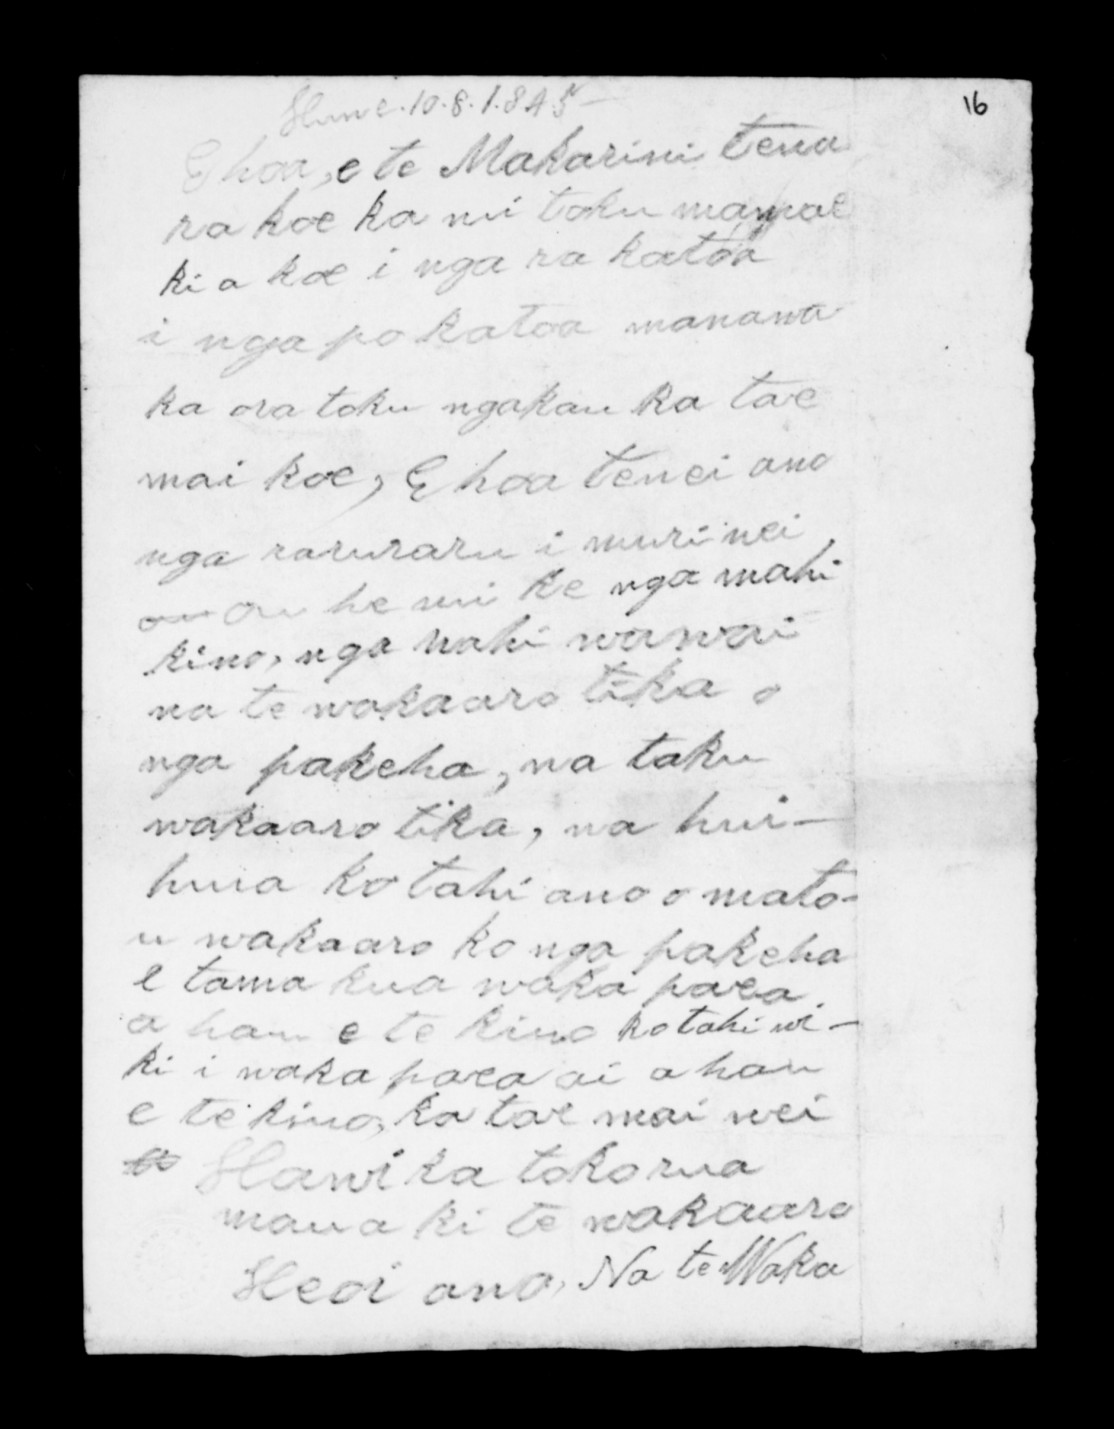 Hune.10.8.1.845
16
E hoa, e te Makarini tena
ra koe ka nui toku mamae
ki a koe i nga ra katoa
i nga po katoa manawa
ka ora toku ngakau ka tae
mai koe, E hoa tenei ano
nga raruraru i muri nei
he nui ke nga mahi
kino, nga mahi wawai
na te wakaaro tika o
nga pakeha, na taku
wakaaro tika, na hui-
huia ko tahi ano o mato-
u wakaaro ko nga pakeha
e tama kua waka paea
a hau e te kino ko tahi wi-
ki i waka paea ai a hau
e te kino, ka tae mai nei
Hawi ka toko rua
maua ki te wakaaro
Heoi ano, Na te Waka